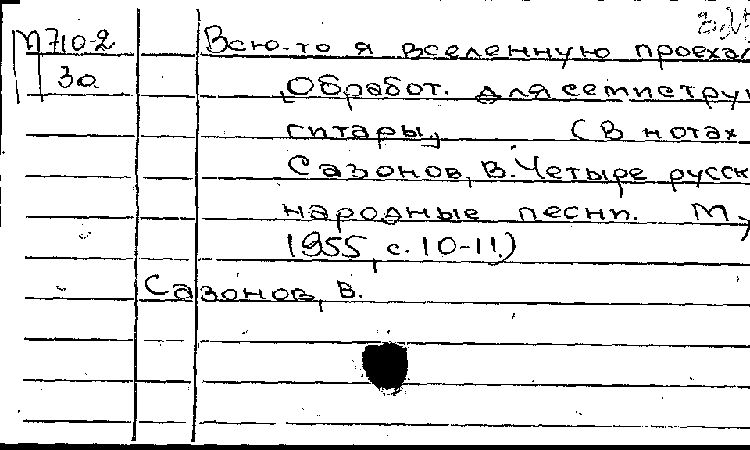 М710-2 Всю-то я вселенную проехал
30 Обработ. для семиструн
гитары, (В нотах
Сазонов, В. Четыре русск
народные песни. М,
1955, с. 10-11.)
Сазонов, В.